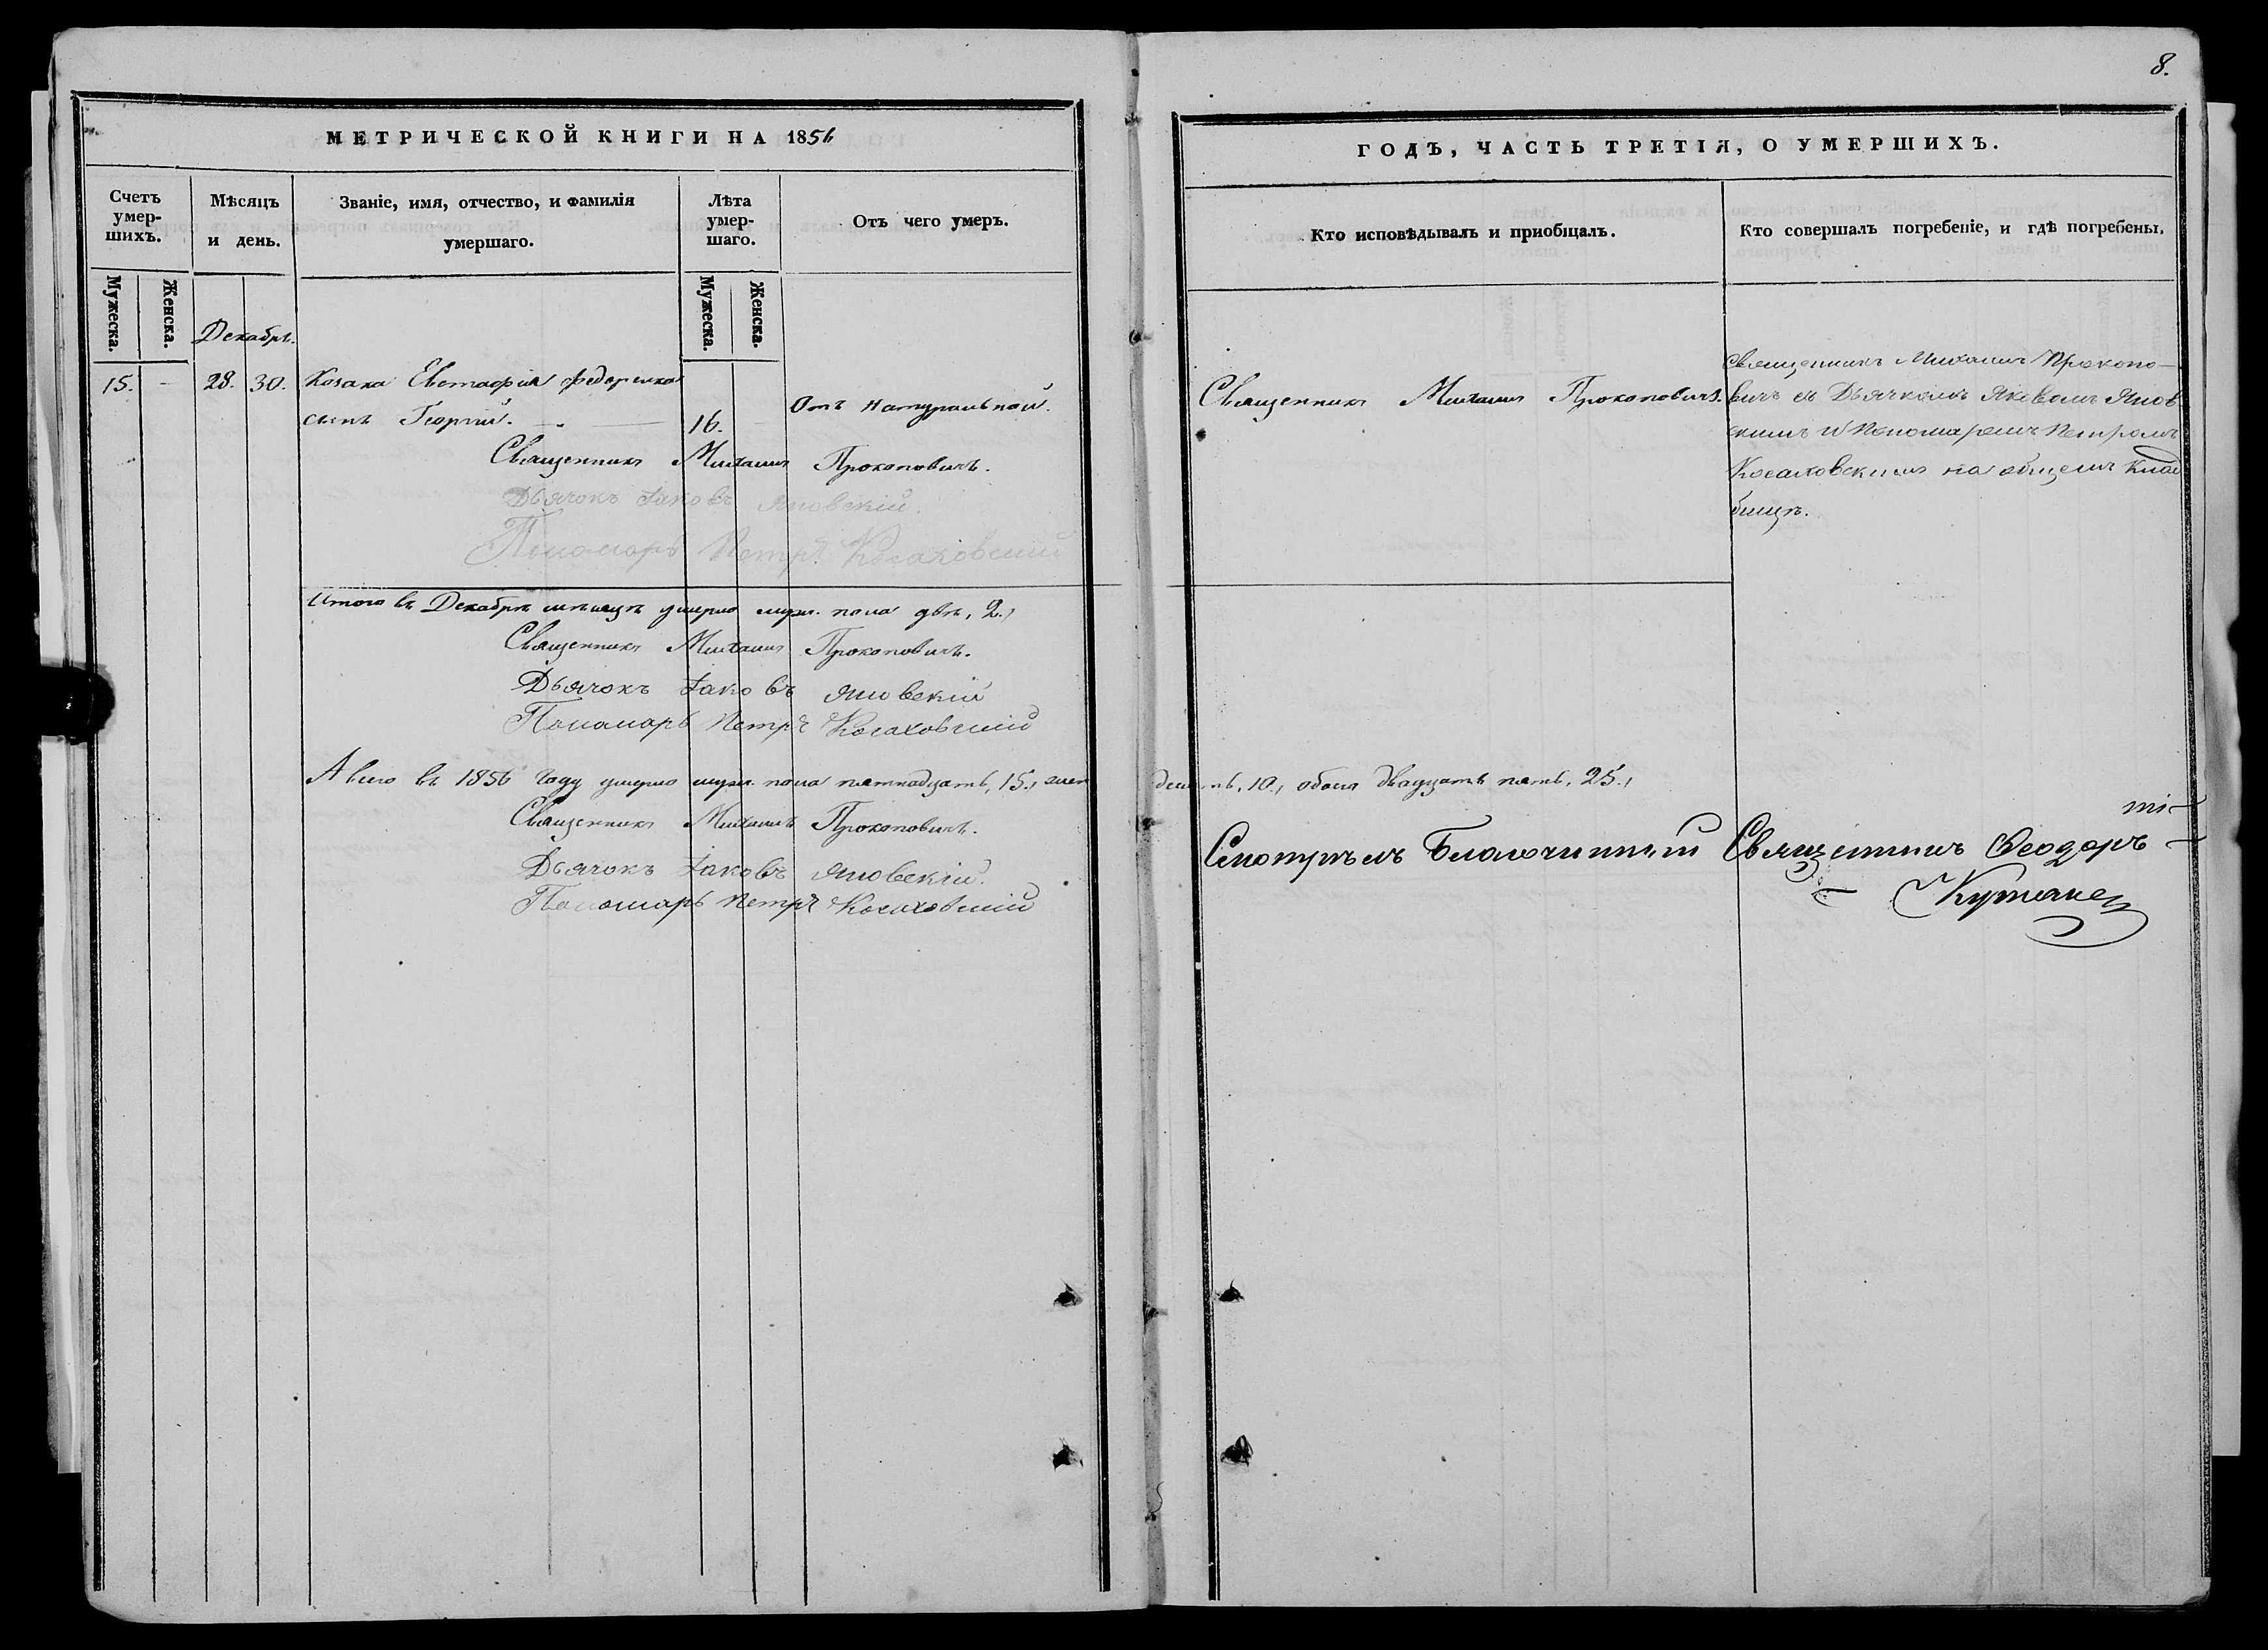 8.
МЕТРИЧЕСКОЙ КНИГИ НА 1856
Счетъ умер-шихъ.
Мужеска.
Женска.
Мѣсяцъ и день.
Званіе, имя, отчество, и фамилія умершаго.
Лѣта умер-шаго.
Мужеска.
Женска.
Отъ чего умеръ.
Декабрь.
15. - 28. 30. Козака Евстафія Федоренка
сынъ Георгій. 16. Отъ натуральной.
Священникъ Михаилъ Прокоповичъ.
Дьячокъ Іаковъ Яновскій.
Пономарь Петръ Косаховский
Итого въ Декабрѣ мѣсяцѣ умерло муж. пола два, 2.,
Священникъ Михаилъ Прокоповичъ.
Дьячокъ Іаковъ Яновскій
Пономарь Петръ Косаховский
А всего въ 1856 году умерло муж. пола пятнадцать, 15., жен
Священникъ Михаилъ Прокоповичъ.
Дьячокъ Іаковъ Яновскій.
Пономарь Петръ Косаховский
ГОДЪ, ЧАСТЬ ТРЕТІЯ, О УМЕРШИХЪ.
Кто исповѣдывалъ и приобщалъ.
Кто совершалъ погребеніе, и гдѣ погребены.
Священникъ Михаилъ Прокоповичъ.
Священникъ Михаилъ Прокопо-
вичъ съ Дьячкомъ Яковомъ Янов
скимъ и Пономаремъ Петромъ
Косаховскимъ на общемъ клад
бищѣ.
десять, 10., обоего двадцать пять, 25.,
Смотрѣлъ Благочинный Священникъ Феодоръ